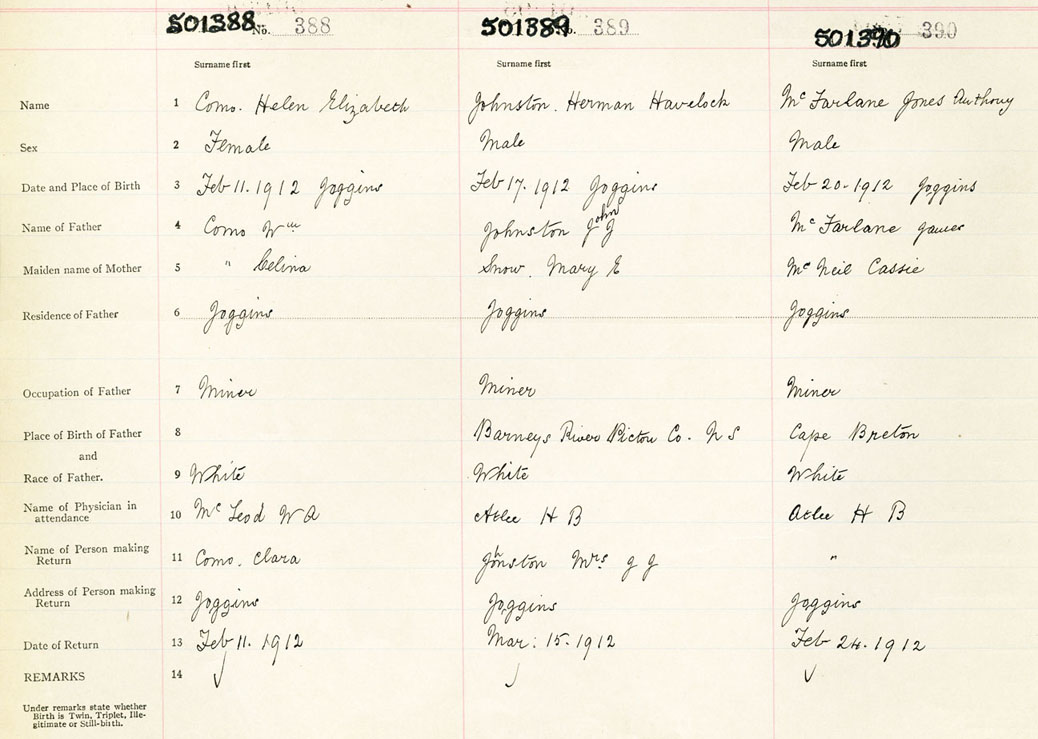 501388 No. 388 501389 No. 389 501390 390
Surname first Surname first Surname first
Name 1 Como. Helen Elizabeth Johnston. Herman Havelock Mc Farlane Jones Anthony
Sex 2 Female Male Male
Date and Place of Birth 3 Feb 11. 1912 Joggins Feb 17. 1912 Joggins Feb 20-1912 Joggins
Name of Father 4 Como Wm Johnston John J Mc Farlane James
Maiden name of Mother 5 " Celina Snow. Mary E Mc Neil Cassie
Residence of Father 6 Joggins Joggins Joggins
Occupation of Father 7 Miner Miner Miner
Place of Birth of Father 8 Barneys River Pictou Co. N S Cape Breton
and
Race of Father. 9 White White White
Name of Physician in
attendance 10 Mc Leod W A Atlee H B Atlee H B
Name of Person making
Return 11 Como. Clara Johnston Mrs. J J "
Address of Person making
Return 12 Joggins Joggins Joggins
Date of Return 13 Feb 11. 1912 Mar: 15. 1912 Feb 24. 1912
REMARKS 14
Under remarks state whether
Birth is Twin, Triplet, Ille-
gitimate or Still-birth.